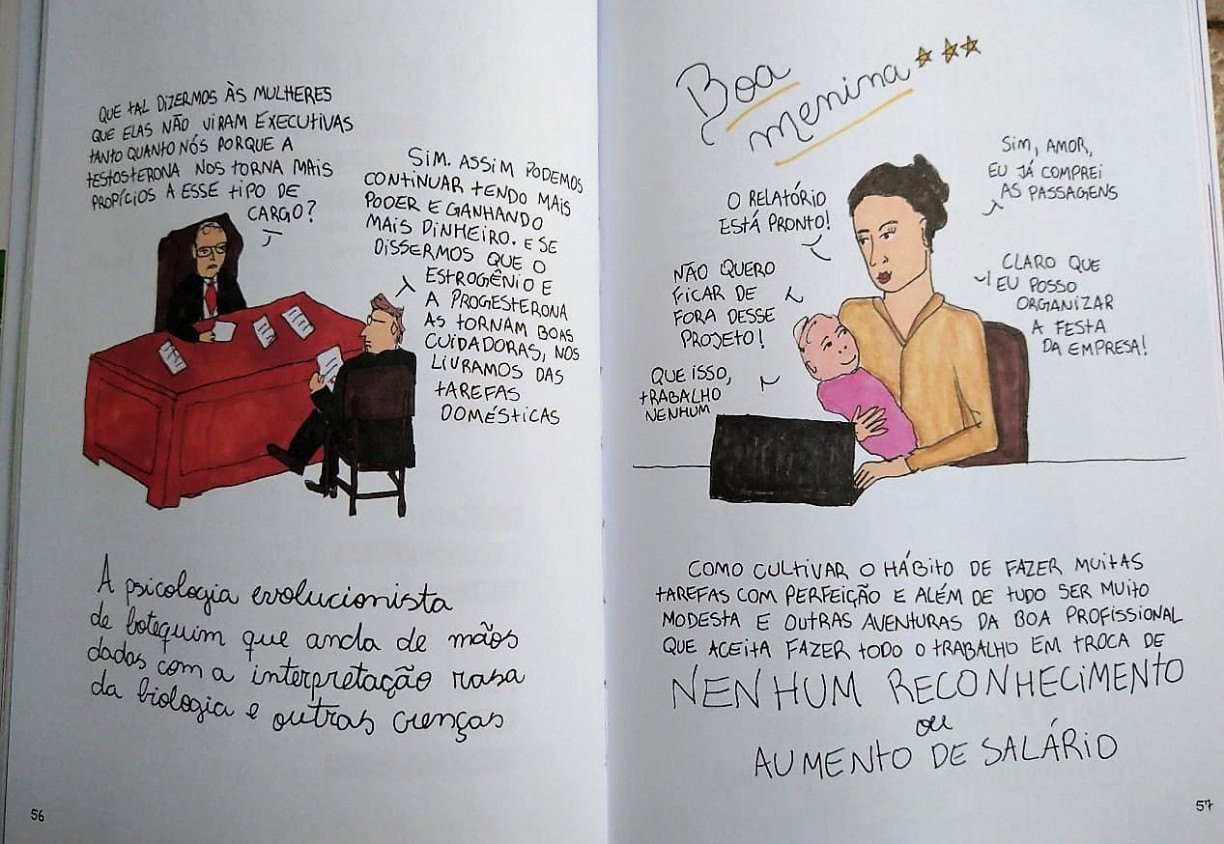 QUE TAL DIZERMOS ÀS MULHERES
QUE ELAS NÃO VIRAM EXECUTIVAS
TANTO QUANTO NÓS PORQUE A
TESTOSTERONA NOS TORNA MAIS
PROPÍCIOS A ESSE TIPO DE
CARGO?
SIM. ASSIM PODEMOS
CONTINUAR TENDO MAIS
PODER E GANHANDO
MAIS DINHEIRO. E SE
DISSERMOS QUE O
ESTROGÊNIO E
A PROGESTERONA
AS TORNAM BOAS
CUIDADORAS, NOS
LIVRAMOS DAS
TAREFAS
DOMÉSTICAS
A psicologia evolucionista
de botequim que anda de mãos
dadas com a interpretação rasa
da biologia e outras crenças
56
Boa
menina
O RELATÓRIO
ESTÁ PRONTO!
SIM, AMOR,
EU JÁ COMPREI
AS PASSAGENS
NÃO QUERO
FICAR DE
FORA DESSE
PROJETO!
CLARO QUE
EU POSSO
ORGANIZAR
A FESTA
DA EMPRESA!
QUE ISSO,
TRABALHO
NENHUM
COMO CULTIVAR O HÁBITO DE FAZER MUITAS
TAREFAS COM PERFEIÇÃO E ALÉM DE TUDO SER MUITO
MODESTA E OUTRAS AVENTURAS DA BOA PROFISSIONAL
QUE ACEITA FAZER TODO O TRABALHO EM TROCA DE
NENHUM RECONHECIMENTO
ou
AUMENTO DE SALÁRIO
57